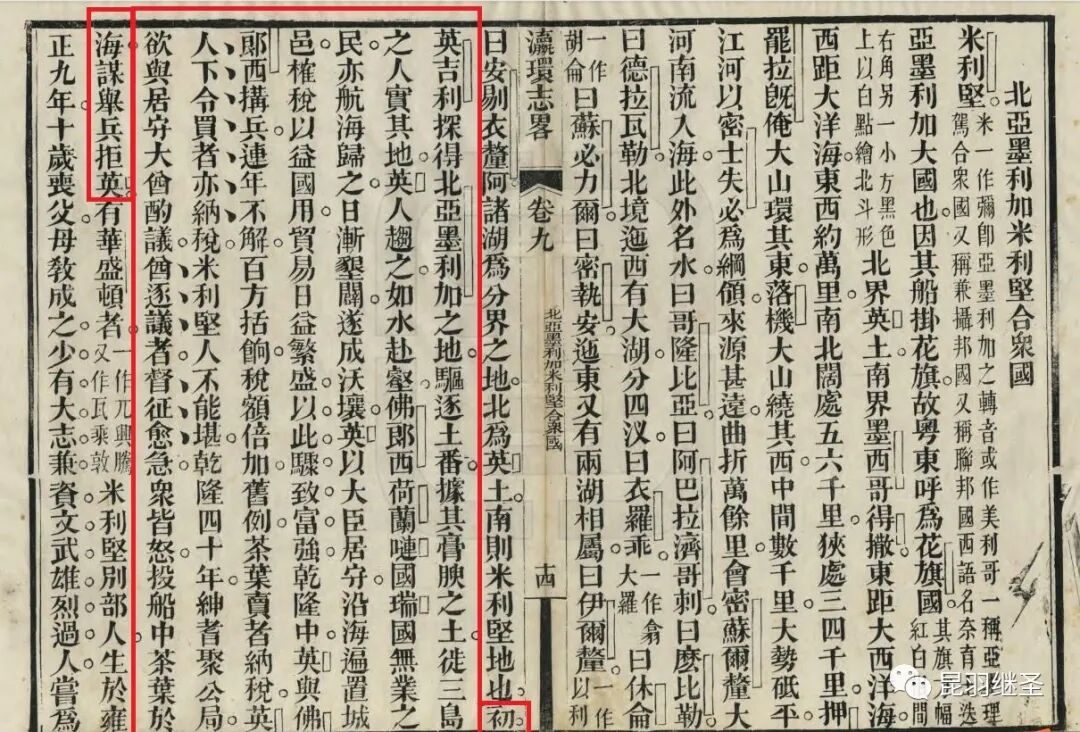 北亞墨利加米利堅合衆國
米利堅 米一作彌卽亞墨利加之轉音或作美利哥一稱亞墨理
駕合衆國又稱兼攝邦國又稱聯邦國西語名奈育士迭
亞墨利加大國也因其船掛花旗故粤東呼爲花旗國 其旗幅
紅白間
右角另一小方黑色
上以白點繪北斗形 北界英土南界墨西哥得撒東距大西洋海
西距大洋海東西約萬里南北闊處五六千里狹處三四千里押
罷拉旣俺大山環其東落機大山繞其西中間數千里大勢砥平
江河以密士失必爲綱領來源甚遠曲折萬餘里會密蘇爾釐大
河南流入海此外名水曰哥隆比亞曰阿巴拉濟哥刺曰麽比勒
曰德拉瓦勒北境迤西有大湖分四汊曰衣羅乖 一作翕
大羅 曰休侖
一作
胡侖 曰蘇必力爾曰密執安迤東又有兩湖相屬曰伊爾釐 一作
以利
瀛環志畧 卷九 北亞墨利加米利堅合衆國 十四
曰安剔衣釐阿諸湖爲分界之地北爲英土南則米利堅地也初
英吉利探得北亞墨利加之地驅逐土番據其膏腴之土徙三島
之人實其地英人趨之如水赴壑佛郎西荷蘭嗹國瑞國無業之
民亦航海歸之日漸墾闢遂成沃壤英以大臣居守沿海遍置城
邑榷稅以益國用貿易日益繁盛以此驟致富強乾隆中英與佛
郎西搆兵連年不解百方括餉稅額倍加舊例茶葉賣者納稅英
人下令買者亦納稅米利堅人不能堪乾隆四十年紳耆聚公局
欲與居守大酋酌議酋逐議者督征愈急衆皆怒投船中茶葉於
海謀舉兵拒英有華盛頓者 一作兀興騰
又作瓦乘敦 米利堅別部人生於雍
正九年十歲喪父母敎成之少有大志兼資文武雄烈過人嘗爲
昆羽继圣